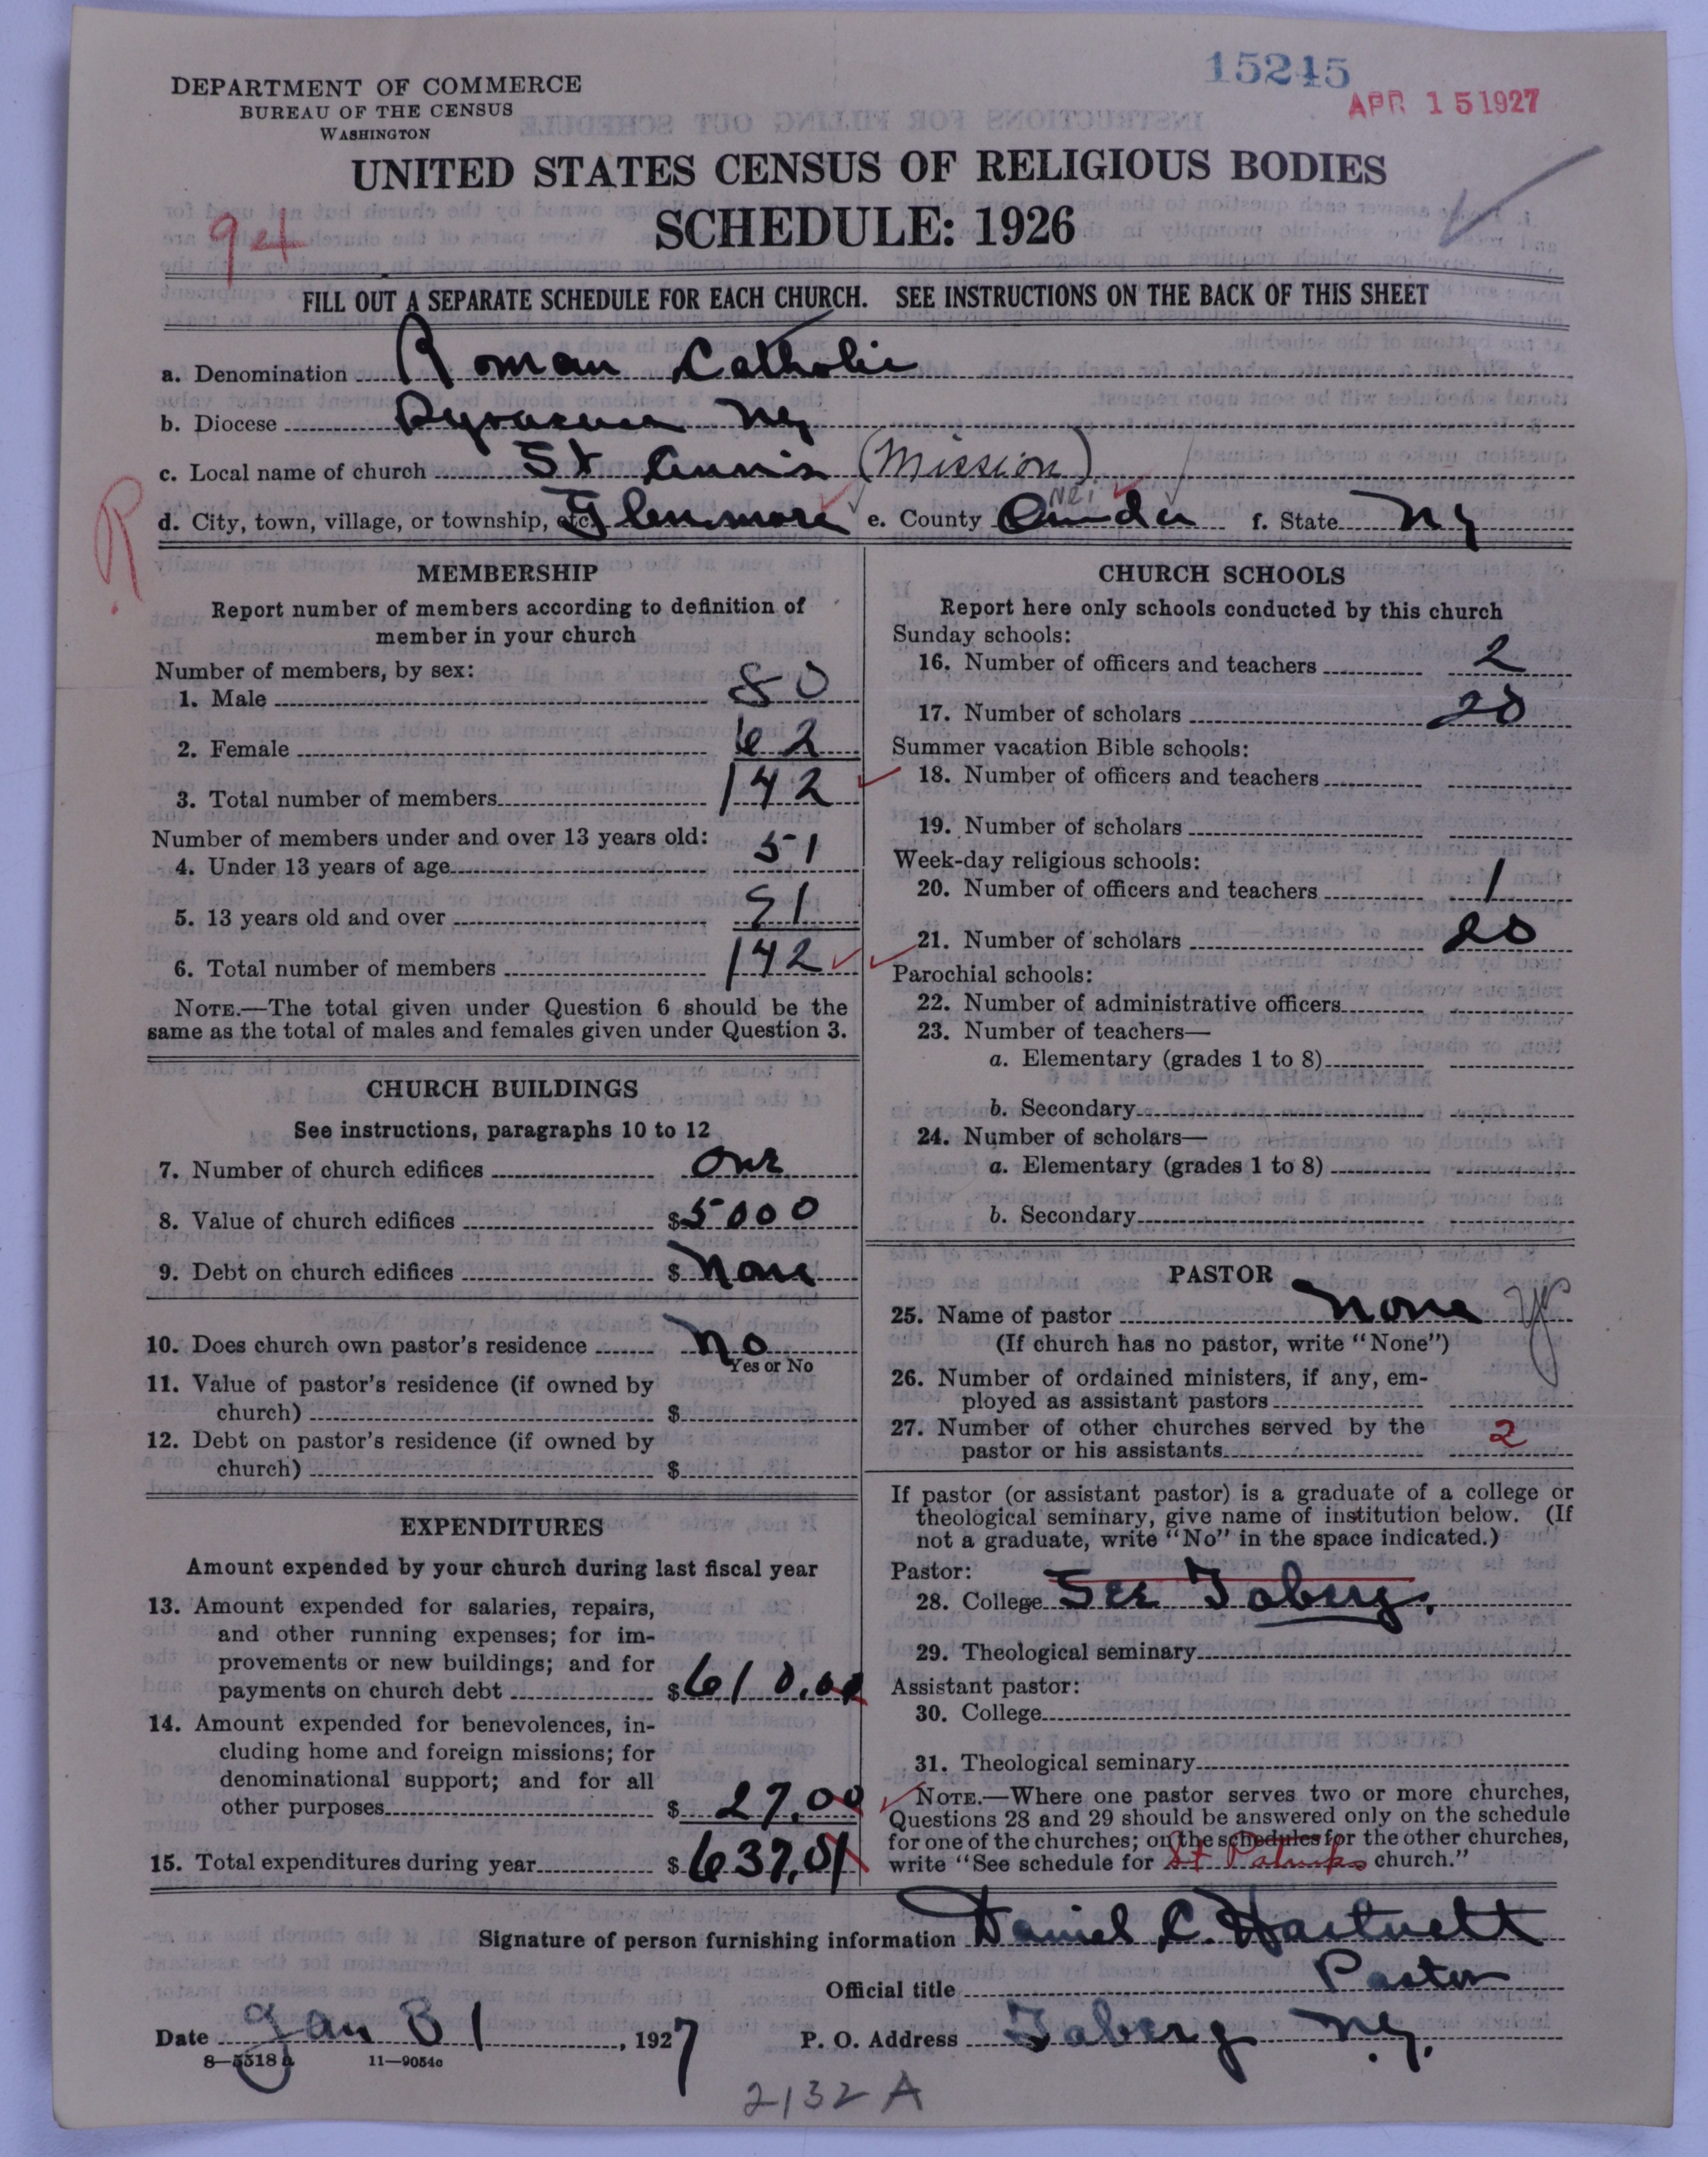 15245
APR 15 1927
DEPARTMENT OF COMMERCE
BUREAU OF THE CENSUS
WASHINGTON
UNITED STATES CENSUS OF RELIGIOUS BODIES
SCHEDULE: 1926
94
FILL OUT A SEPARATE SCHEDULE FOR EACH CHURCH. SEE INSTRUCTIONS ON THE BACK OF THIS SHEET
a. Denomination Roman Catholic
b. Diocese Syracuse NY
c. Local name of church St Ann's (Mission)
R
d. City, town, village, or township, etc. Glenmore e. County Oneida f. State NY
MEMBERSHIP
Report number of members according to definition of
member in your church
Number of members, by sex:
1. Male 80
2. Female 62
3. Total number of members 142
Number of members under and over 13 years old:
4. Under 13 years of age 51
5. 13 years old and over 91
6. Total number of members 142
NOTE.—The total given under Question 6 should be the
same as the total of males and females given under Question 3.
CHURCH BUILDINGS
See instructions, paragraphs 10 to 12
7. Number of church edifices One
8. Value of church edifices $5000
9. Debt on church edifices $ None
10. Does church own pastor's residence No
Yes or No
11. Value of pastor's residence (if owned by
church) $
12. Debt on pastor's residence (if owned by
church) $
EXPENDITURES
Amount expended by your church during last fiscal year
13. Amount expended for salaries, repairs,
and other running expenses; for im-
provements or new buildings; and for
payments on church debt $610.00
14. Amount expended for benevolences, in-
cluding home and foreign missions; for
denominational support; and for all
other purposes $ 27.00
15. Total expenditures during year $ 637.01
CHURCH SCHOOLS
Report here only schools conducted by this church
Sunday schools:
16. Number of officers and teachers 2
17. Number of scholars 20
Summer vacation Bible schools:
18. Number of officers and teachers
19. Number of scholars
Week-day religious schools:
20. Number of officers and teachers 1
21. Number of scholars 20
Parochial schools:
22. Number of administrative officers
23. Number of teachers—
a. Elementary (grades 1 to 8)
b. Secondary
24. Number of scholars—
a. Elementary (grades 1 to 8)
b. Secondary
PASTOR
25. Name of pastor None
(If church has no pastor, write "None")
26. Number of ordained ministers, if any, em-
ployed as assistant pastors
27. Number of other churches served by the
pastor or his assistants 2
If pastor (or assistant pastor) is a graduate of a college or
theological seminary, give name of institution below. (If
not a graduate, write "No" in the space indicated.)
Pastor:
28. College See Taberg.
29. Theological seminary
Assistant pastor:
30. College
31. Theological seminary
NOTE.—Where one pastor serves two or more churches,
Questions 28 and 29 should be answered only on the schedule
for one of the churches; on the schedules for the other churches,
write "See schedule for St Patricks church."
Signature of person furnishing information Daniel C. Hartnett
Official title Pastor
Date Jan 31, 1927 P. O. Address Taberg N.Y.
8-5518a 11-9054c
2132 A